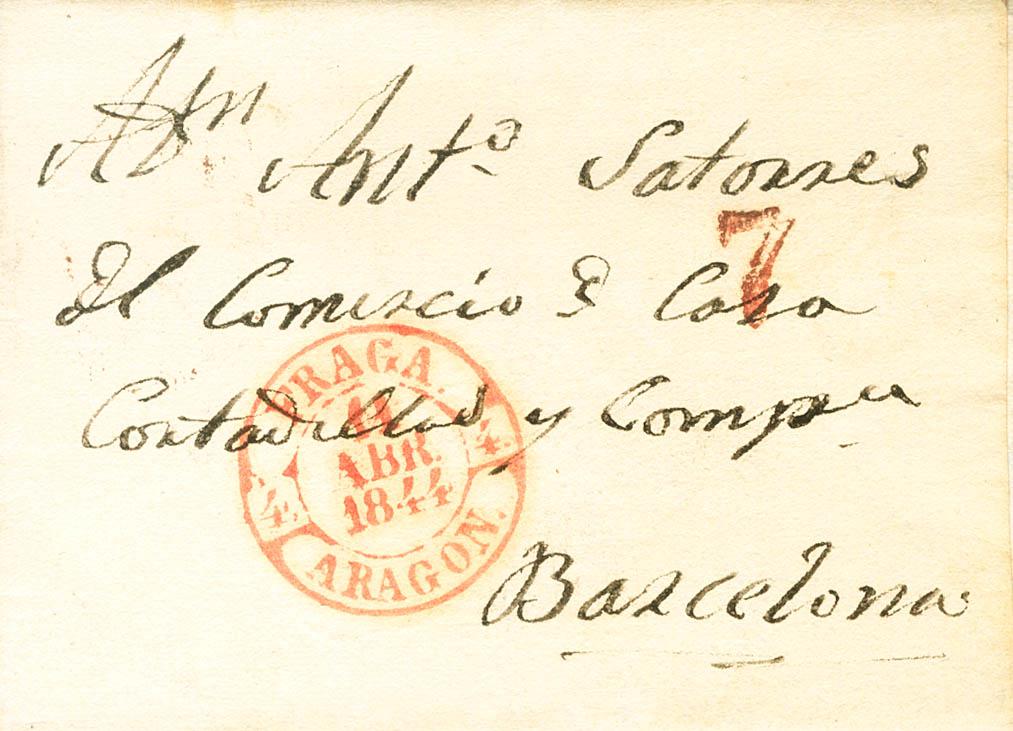 A Dn Anto. Satorres
7
del Comercio de Casa
Contadellas y Compa.
FRAGA.
ABR.
1844
4.
4.
ARAGON.
Barcelona